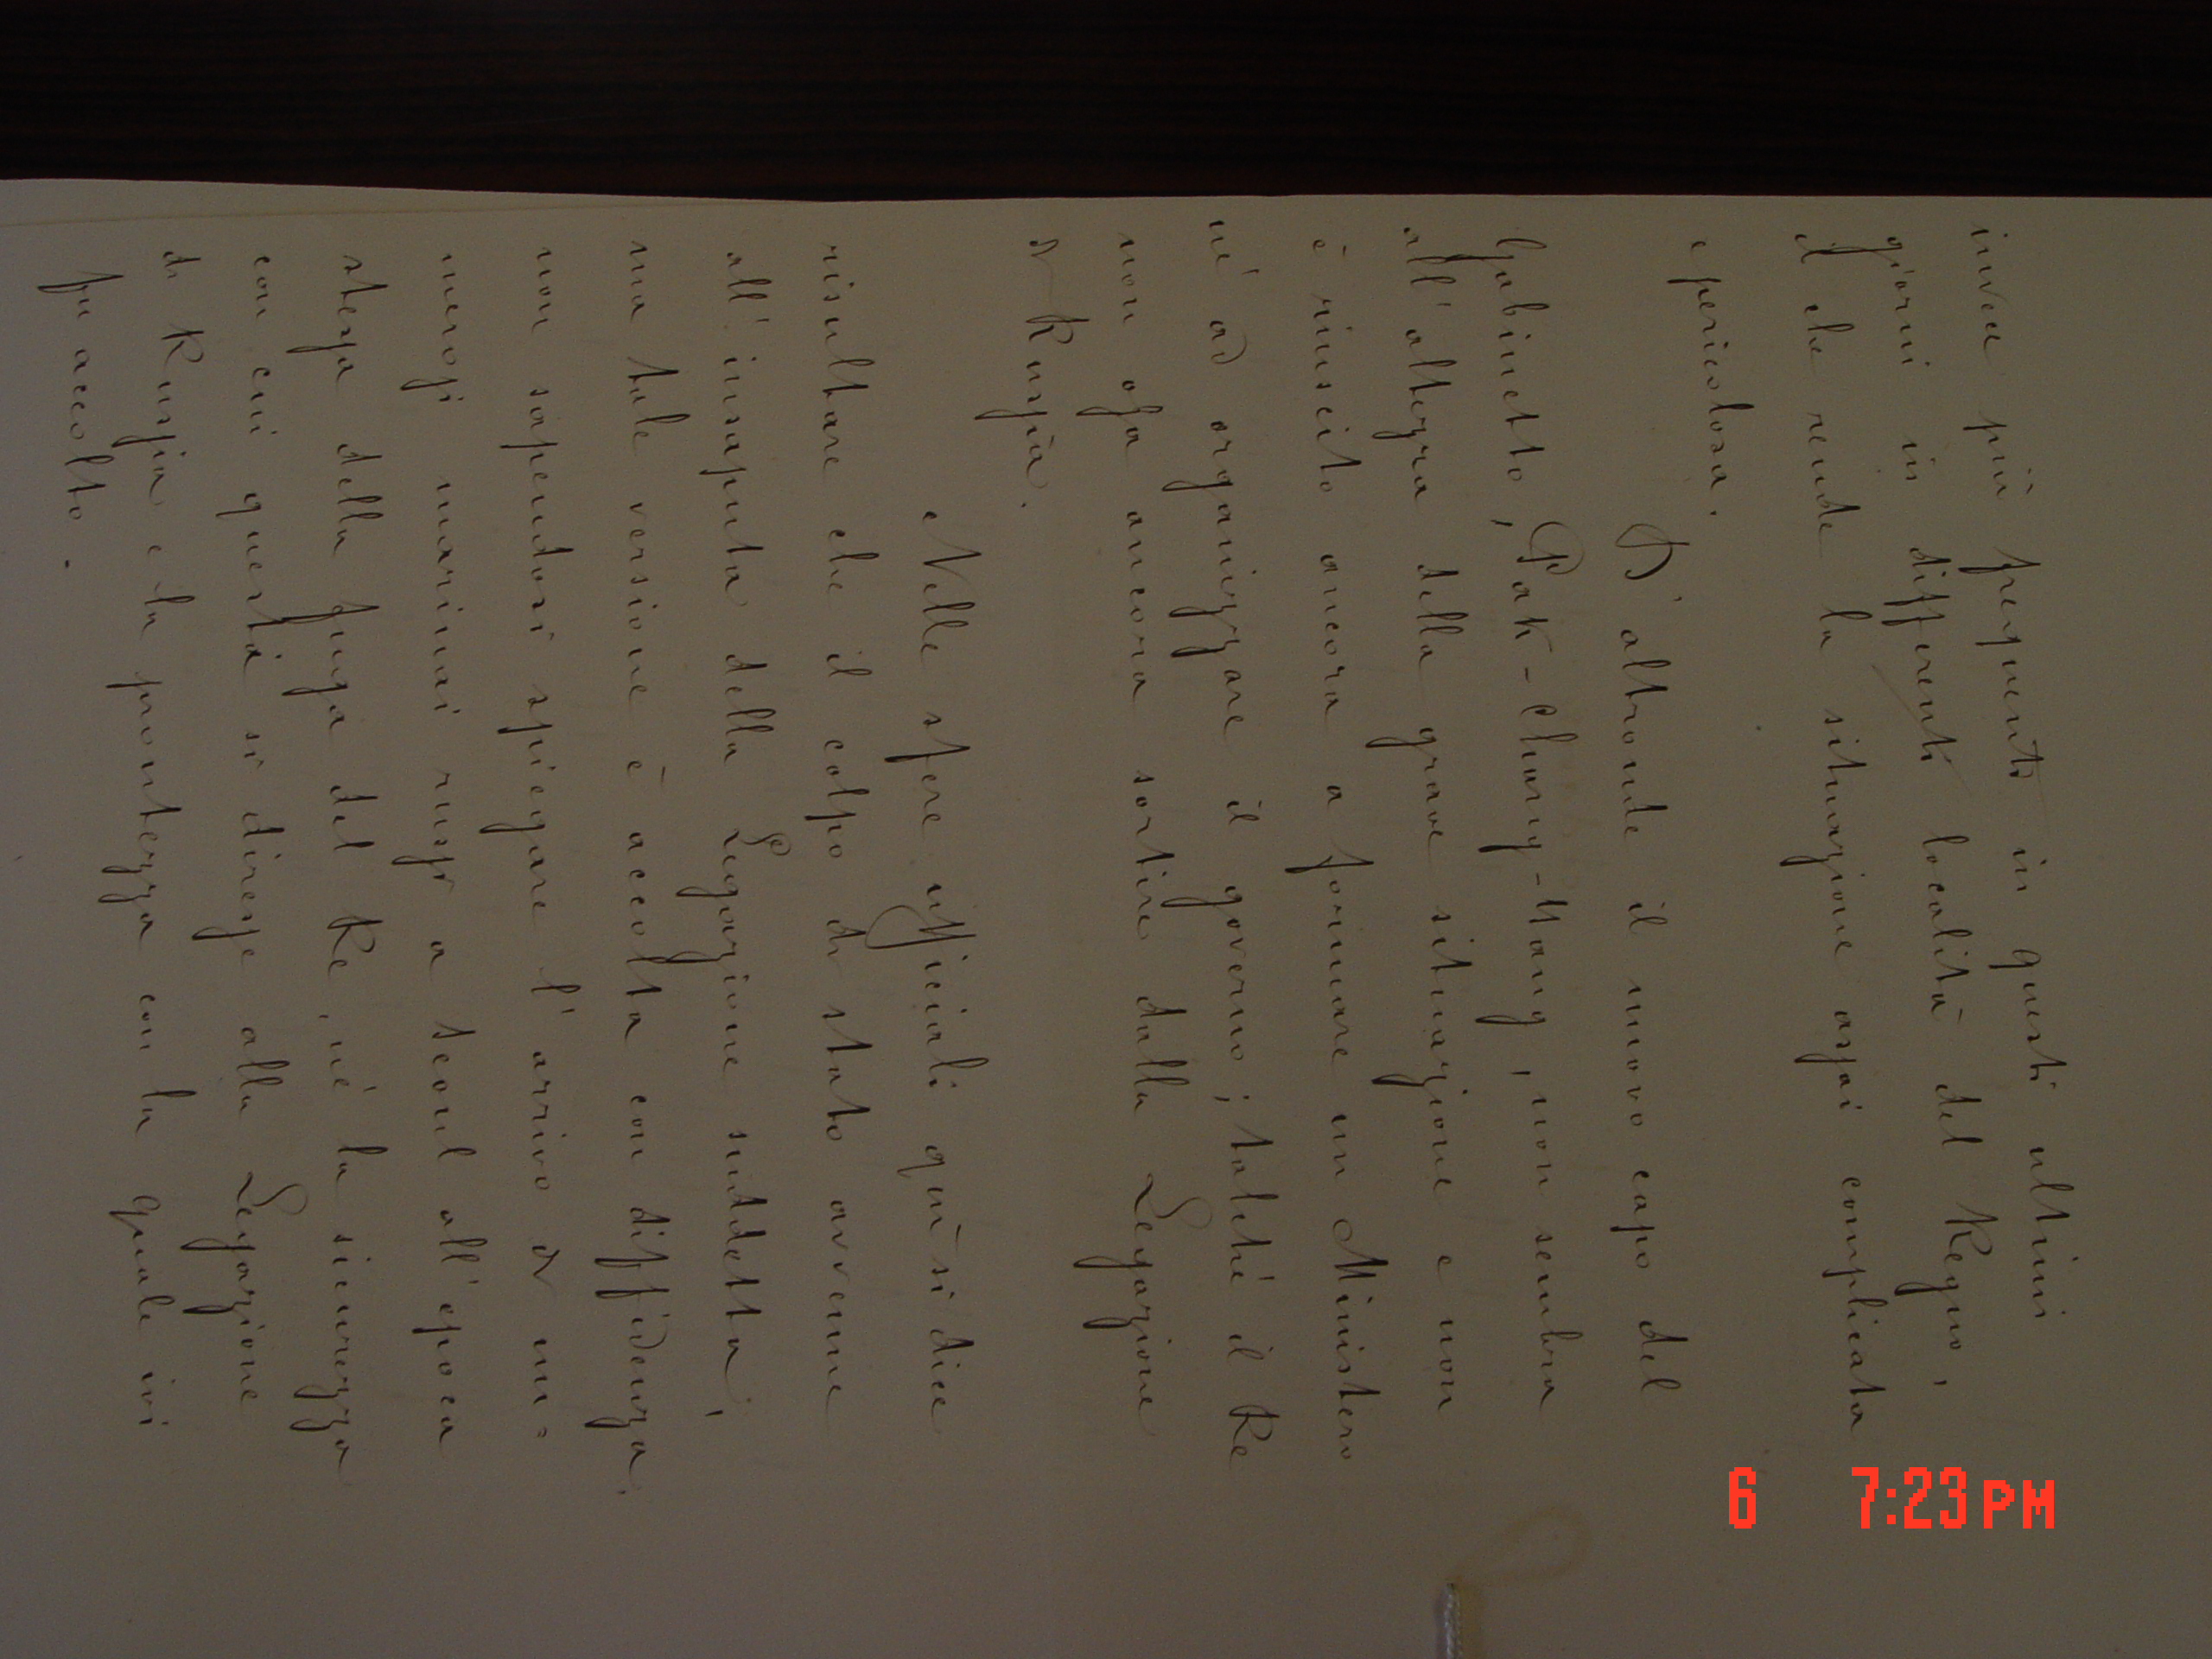 invece più frequenti in questi ultimi
giorni in differenti località del Regno,
il che rende la situazione assai complicata
e pericolosa.
D'altronde il nuovo capo del
Gabinetto, Pak-Chung-Yang, non sembra
all'altezza della grave situazione e non
è riuscito ancora a formare un Ministero
nè ad organizzare il governo; talchè il Re
non osa ancora sortire dalla Legazione
di Russia.
Nelle sfere ufficiali qui si dice
risultare che il colpo di stato avvenne
all'insaputa della Legazione suddetta,
ma tale versione è accolta con diffidenza,
non sapendosi spiegare l'arrivo di nu=
merosi marinai russi a Seoul all'epoca
stessa della fuga del Re, nè la sicurezza
con cui questa si diresse alla Legazione
di Russia e la prontezza con la quale ivi
fu accolto.
6 7:23 PM